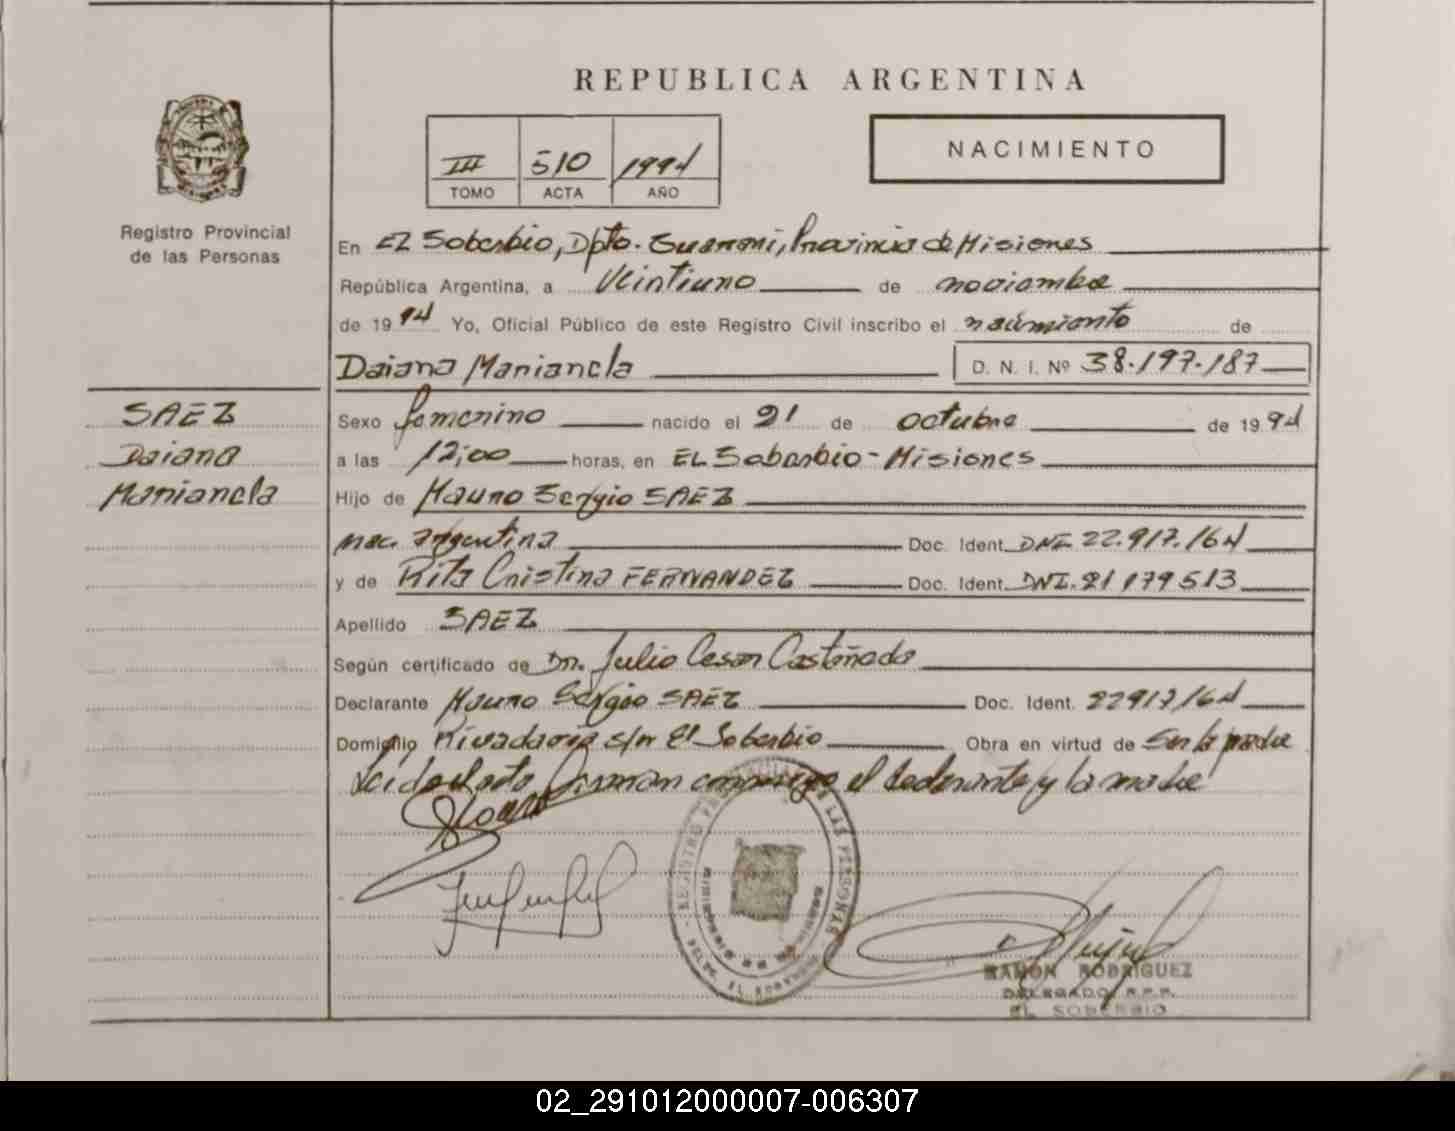 REPUBLICA ARGENTINA
NACIMIENTO
III 510 1994
TOMO ACTA AÑO
Registro Provincial
de las Personas
En El Soberbio, Dpto. Guarani, Provincia de Misiones
República Argentina, a Veintiuno de noviembre
de 1994 Yo, Oficial Público de este Registro Civil inscribo el nacimiento de
Daiana Marianela D. N. I. Nº 38.197.187
SAEZ
Daiana
Marianela
Sexo femenino nacido el 21 de octubre de 1994
a las 12,00 horas, en EL Soberbio - Misiones
Hijo de Mauro Sergio SAEZ
nac. argentina Doc. Ident. DNI 22.917.164
y de Rita Cristina FERNANDEZ Doc. Ident. DNI. 21179513
Apellido SAEZ
Según certificado de Dr. Julio Cesar Castañada
Declarante Mauro Sergio SAEZ Doc. Ident. 22917164
Domicilio Rivadavia s/n El Soberbio Obra en virtud de Ser la madre
Leida el acta firman conmigo el declarante y la madre
REGISTRO DE LAS PERSONAS
RAMON RODRIGUEZ
DELEGADO R.P.P.
EL SOBERBIO
02_291012000007-006307